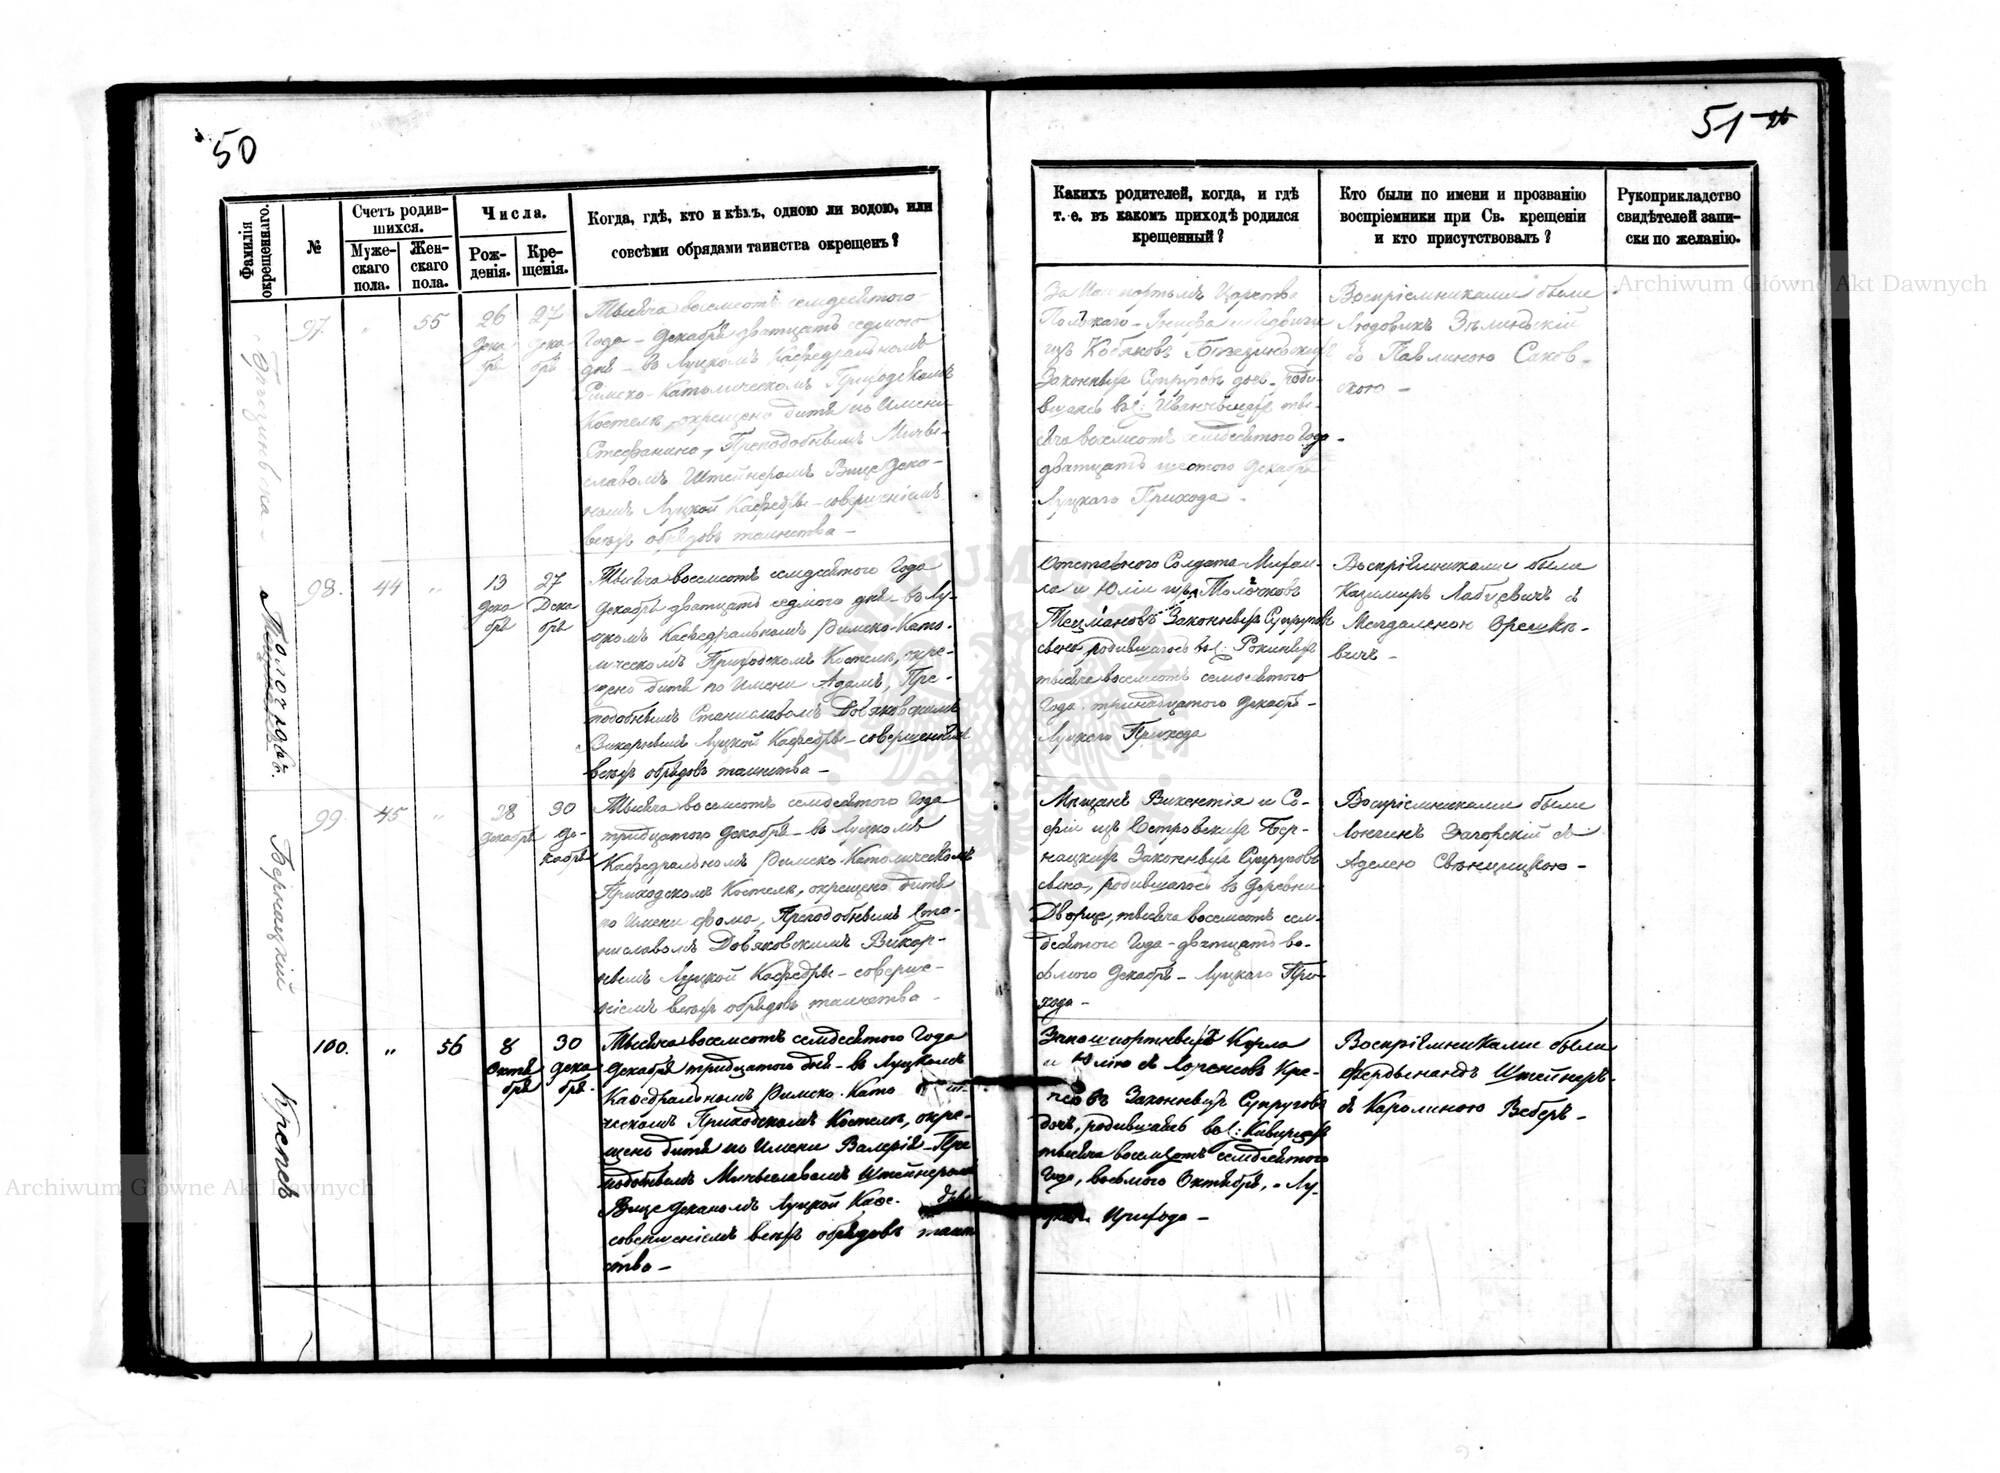 50
Фамилія окрещеннаго.
№
Счетъ родив-
шихся.
Муже-
скаго
пола.
Жен-
скаго
пола.
Числа.
Рож-
денія.
Кре-
щенія.
Когда, гдѣ, кто и кѣмъ, одною ли водою, или
совсѣми обрядами таинства окрещенъ?
97.
"
55
26
Дека
брѣ
27
Дека
брѣ
Тысяча восемсотъ семдесятого
Года – Декабря дватцать седмого
дня – въ Луцкомъ Кафедральномъ
Римско-Католическомъ Приходскомъ
Костелѣ, окрещено дитя по Имени
Стефанина, Преподобнымъ Мечи-
славомъ Штейнеромъ Вицедека-
номъ Луцкой Кафедры – совершеніемъ
всѣхъ обрядовъ таинства –
98.
44
"
13
Дека
брѣ
27
Дека
брѣ
Тысяча восемсотъ семдесятого Года
Декабря дватцать седмого дня – въ Лу-
цкомъ Кафедральномъ Римско-Като-
лическомъ Приходскомъ Костелѣ, окре-
щено дитя по Имени Адамъ, Пре-
подобнымъ Станиславомъ Довяковскимъ
Викарнымъ Луцкой Кафедры – совершеніемъ
всѣхъ обрядовъ таинства –
Бернацкій
99.
45
"
28
Декабрѣ
30
Де-
кабрѣ
Тысяча восемсотъ семдесятого Года
тридцатого Декабря – въ Луцкомъ
Кафедральномъ Римско-Католическомъ
Приходскомъ Костелѣ, окрещено дитя
по Имени Фома, Преподобнымъ Ста-
ниславомъ Довяковскимъ Викар-
нымъ Луцкой Кафедры – соверше-
ніемъ всѣхъ обрядовъ таинства –
100.
"
56
8
Октя
бря
30
Дека
бря
Тысяча восемсотъ семдесятого Года
Декабря тридцатого дня – въ Луцкомъ
Кафедральномъ Римско-Като
ческомъ Приходскомъ Костелѣ, окре-
щено дитя по Имени Валерія – Пре
подобнымъ Мечиславомъ Штейнеромъ
Вицедеканомъ Луцкой Кафе-
совершеніемъ всѣхъ обрядовъ таин
ства –
51
26
Какихъ родителей, когда, и гдѣ
т. е. въ какомъ приходѣ родился
крещенный?
Кто были по имени и прозванію
воспріемники при Св. крещеніи
и кто присутствовалъ?
Рукоприкладство
свидѣтелей запи-
ски по желанію.
За Паспортомъ Царства
Законныхъ Супруговъ дочь – роди-
тыс-
яча восемсотъ семдесятого Года –
дватцать шестого Декабря
Луцкаго Прихода –
Воспріемниками были
Людовикъ Зѣлинскій
съ Павлиною Саков-
скою –
Отставного Солдата Михаи-
ла и Юліи изъ Толочковъ
Законныхъ Супруговъ
сынъ, родившагося
тысяча восемсотъ семдесятого
Года тринадцатого Декабря –
Луцкаго Прихода
Воспріемниками были
Казимиръ Лабцевичъ съ
Магдаленою Орешкѣ-
вичъ –
Мѣщанъ Викентія и Со-
фіи изъ Островскихъ Бер-
нацкихъ Законныхъ Супруговъ
сына, родившагося въ Деревни
Дворце, тысяча восемсотъ сем-
десятого Года – дватцать во-
смого Декабря – Луцкаго При-
хода –
Воспріемниками были
Лонгинъ Загорскій съ
Аделею Свѣнцицкою –
Запашпортныхъ Карла
и Юлію съ Лоренсовъ Кре-
Законныхъ Супруговъ
дочь, родившаяся
тысяча восемсотъ семдесятого
Года, восьмого Октября, – Лу-
Прихода –
Воспріемниками были
Фердынандъ Штейнеръ
съ Каролиною Веберъ –
Archiwum Główne Akt Dawnych
Archiwum Główne Akt Dawnych